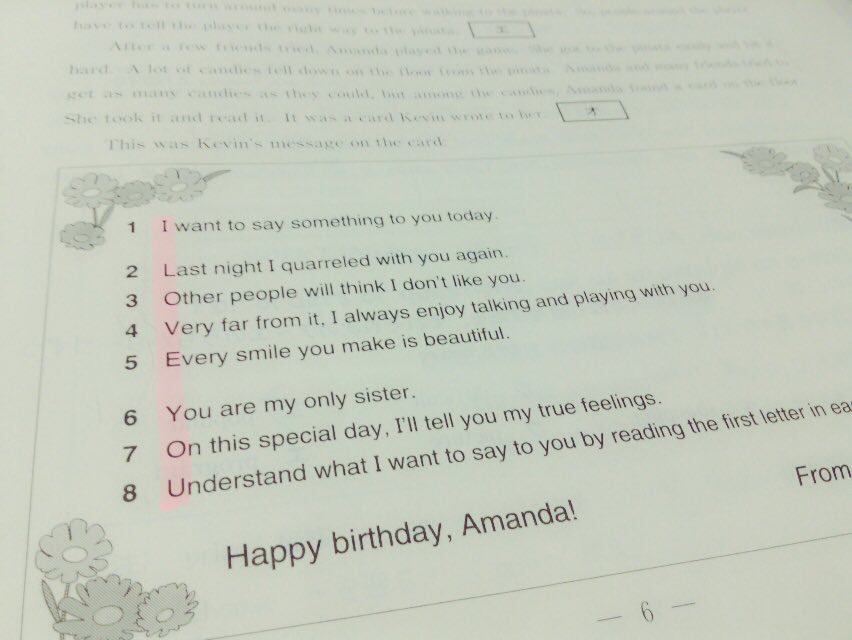 player has to turn around many times before walking to the pinata. So, people around the player
have to tell the player the right way to the pinata.
After a few friends tried, Amanda played the game. She got to the pinata easily and hit it
hard. A lot of candies fell down on the floor from the pinata. Amanda and many friends tried to
get as many candies as they could, but among the candies, Amanda found a card on the floor.
She took it and read it. It was a card Kevin wrote to her. オ
This was Kevin's message on the card.
1 I want to say something to you today.
2 Last night I quarreled with you again.
3 Other people will think I don't like you.
4 Very far from it, I always enjoy talking and playing with you.
5 Every smile you make is beautiful.
6 You are my only sister.
7 On this special day, I'll tell you my true feelings.
8 Understand what I want to say to you by reading the first letter in ea
From
Happy birthday, Amanda!
— 6 —